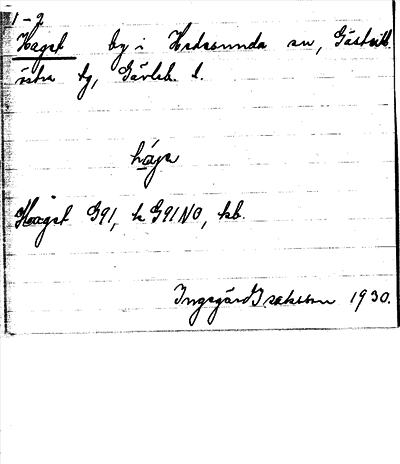 1-2
Hagst by i Hedesunda sn, Gästrikl.
östra tg, Gävleb. l.
håge
Hagst G91, k G91NO, kb.
Ingegärd Isaksson 1930.